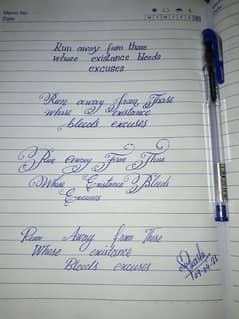 Memo No.
Date
M T W T F S S
Run away from those
whose existance bleeds
excuses
Run away from Those
whose existance
bleeds excuses
Run away From Those
Whose Existance Bleeds
Excuses
Run Away from those
Whose existance
Bleeds excuses